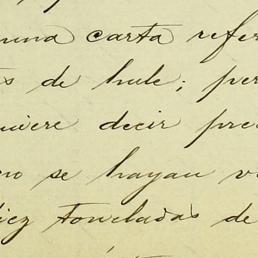 una carta refer
s de hule; per
uiere decir pre
no se hayan v
diez toneladas de